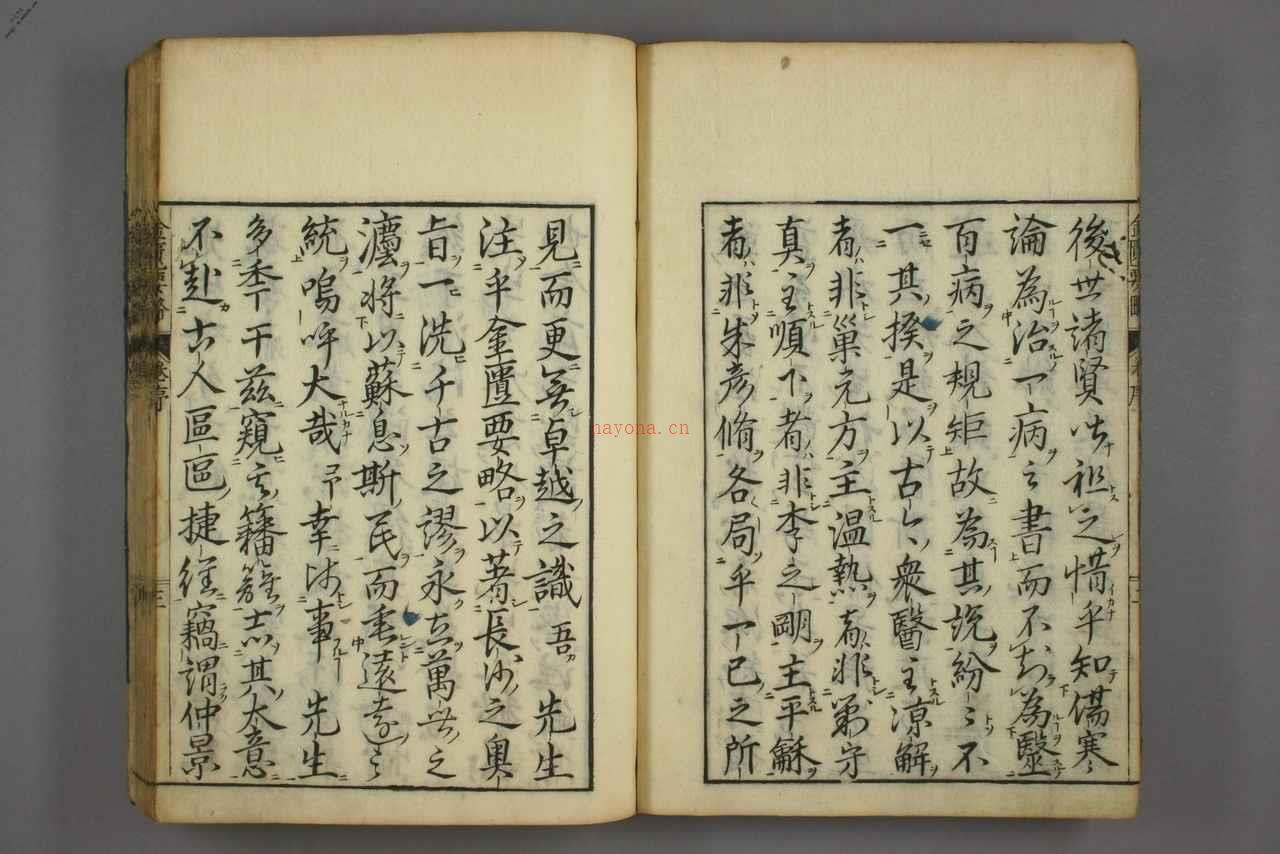 後世諸賢皆祖之惜乎知傷寒
論為治一病之書而不知為醫
百病之規矩故為其説紛〻不
一其揆是以古今衆醫主涼解
者非巢元方主温熱者非劉守
真主順下者非李之剛主平龢
者非朱彦脩各局乎一己之所
見而更無卓越之識吾 先生
注乎金匱要略以著長沙之奥
旨一洗千古之謬永立萬世之
灋將以蘇息斯民而垂遠矣之
統嗚呼大哉予幸師事 先生
多季于茲窺其籓籬志其大意
不赴古人區區捷徑竊謂仲景
nayona.cn